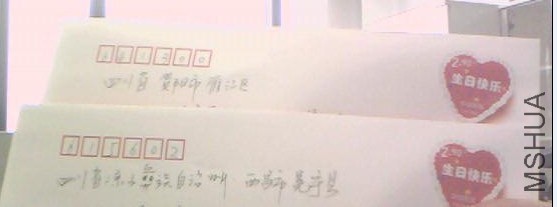 641300
四川省 资阳市 雁江区
生日快乐
615602
四川省凉山彝族自治州 西昌市冕宁县
生日快乐
MSHUA